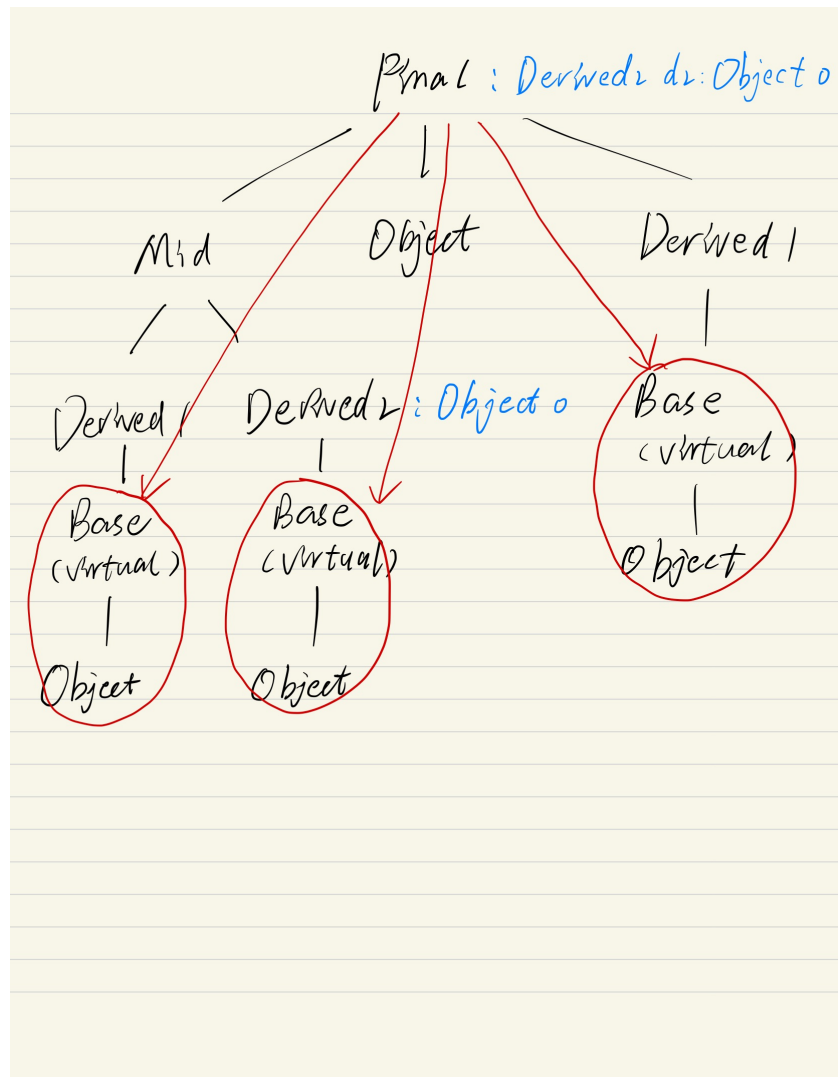 Final : Derived2 d2: Object o
Mid Object Derived1
Derived1 Derived2 : Object o Base
(virtual)
Base Base
(virtual) (virtual) Object
Object Object